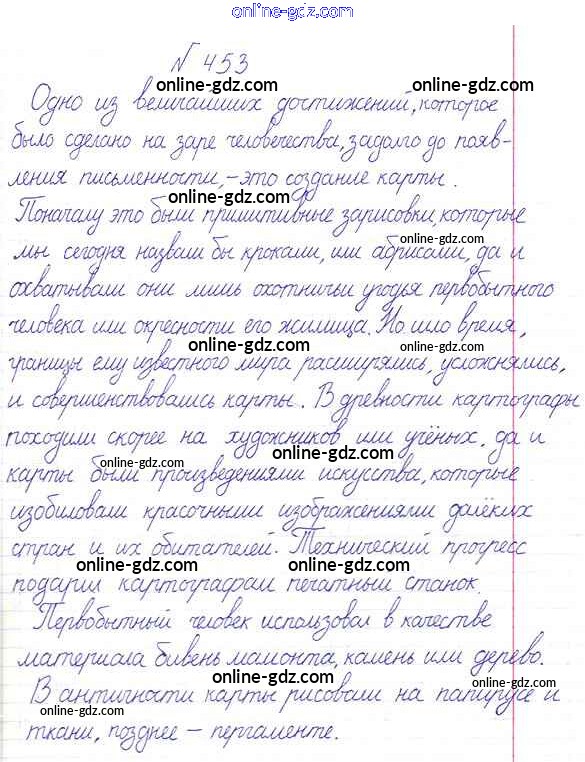 online-gdz.com
N 453
online-gdz.com online-gdz.com
Одно из величайших достижений, которое
было сделано на заре человечества, задолго до появ-
online-gdz.com
ления письменности, – это создание карты.
online-gdz.com
Поначалу это были примитивные зарисовки, которые
online-gdz.com
мы сегодня назвали бы кроками, или абрисами, да и
online-gdz.com
охватывали они лишь охотничьи угодья первобытного
человека или окресности его жилища. Но шло время,
online-gdz.com
границы ему известного мира расширялись, усложнялись,
и совершенствовались карты. В древности картографы
online-gdz.com
походили скорее на художников или учёных, да и
online-gdz.com
карты были произведениями искусства, которые
online-gdz.com
изобиловали красочными изображениями далёких
стран и их обитателей. Технический прогресс
online-gdz.com online-gdz.com
подарил картографам печатный станок.
Первобытный человек использовал в качестве
online-gdz.com
материала бивень мамонта, камень или дерево.
online-gdz.com
В античности карты рисовали на папирусе и
online-gdz.com online-gdz.com
ткани, позднее – пергаменте.